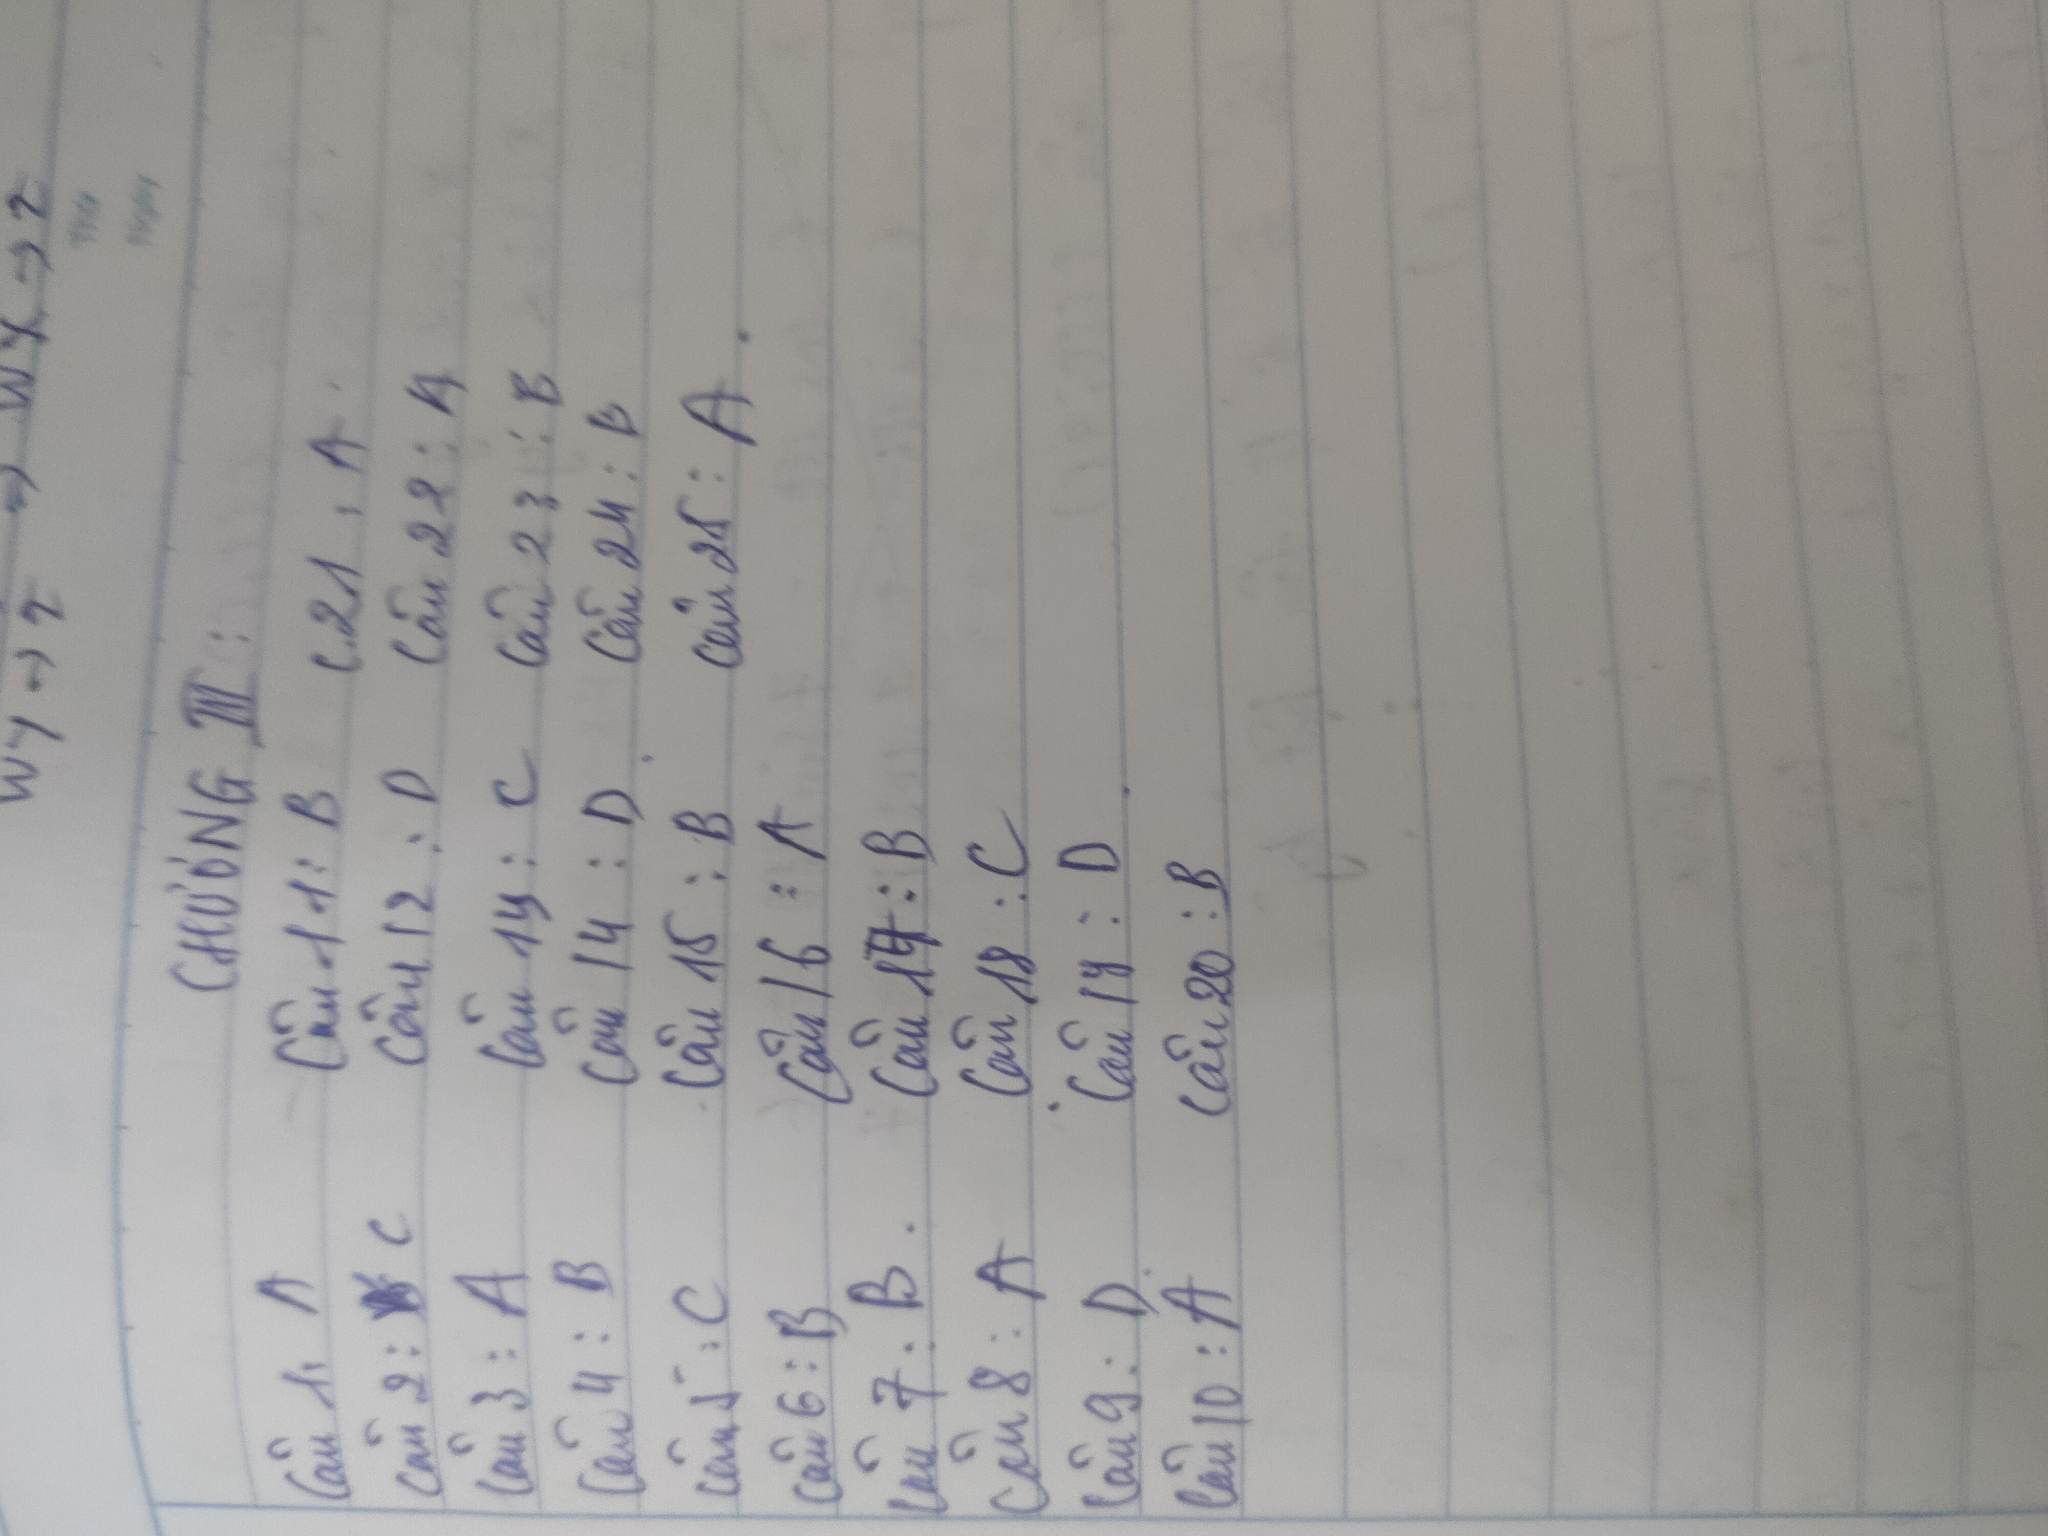 Wy → 2 ⇒ Wy → 2
Thứ
Ngày
CHƯƠNG III :
Câu 1: A
Câu 2: C
Câu 3 : A
Câu 4 : B
Câu 5 : C
Câu 6 : B
Câu 7 : B .
Câu 8 : A
Câu 9 : D.
Câu 10 : A
Câu 11 : B
Câu 12 : D
Câu 13 : C
Câu 14 : D.
Câu 15 : B
Câu 16 : A
Câu 17 : B
Câu 18 : C
Câu 19 : D .
Câu 20 : B
C.21 : A
Câu 22 : A
Câu 23 : B
Câu 24 : B
Câu 25 : A .